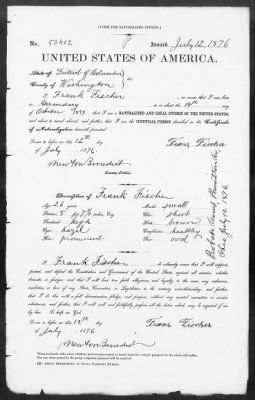 [FORM FOR NATURALIZED CITIZEN.]
No. 50402 P Issued July 12, 1876
UNITED STATES OF AMERICA.
State of District of Columbia
County of Washington
I, Frank Fischer, do swear that I was born
in Germany on or about the 14th day
of October 1849, that I am a NATURALIZED AND LOYAL CITIZEN OF THE UNITED STATES,
and about to travel abroad; and further that I am the IDENTICAL PERSON described in the Certificate
of Naturalization herewith presented.
Sworn to before me this 12th day
of July 1876.
Franz Fischer
Newton Benedict
Notary Public.
Description of Frank Fischer
Age: 26 years
Mouth: small
Stature: 5 feet 7 3/4 inches, Eng.
Chin: short
Forehead: high
Hair: brown
Eyes: hazel
Complexion: healthy
Nose: prominent
Face: oval
I, Frank Fischer, do solemnly swear that I will support,
protect, and defend the Constitution and Government of the United States against all enemies, whether
domestic or foreign; and that I will bear true faith, allegiance, and loyalty to the same, any ordinance,
resolution, or law of any State, Convention, or Legislature to the contrary notwithstanding; and further,
that I do this with a full determination, pledge, and purpose, without any mental reservation or evasion
whatsoever; and further, that I will well and faithfully perform all the duties which may be required of me
by law. So help me God.
Sworn to before me this 12th day
of July 1876.
Franz Fischer
Newton Benedict